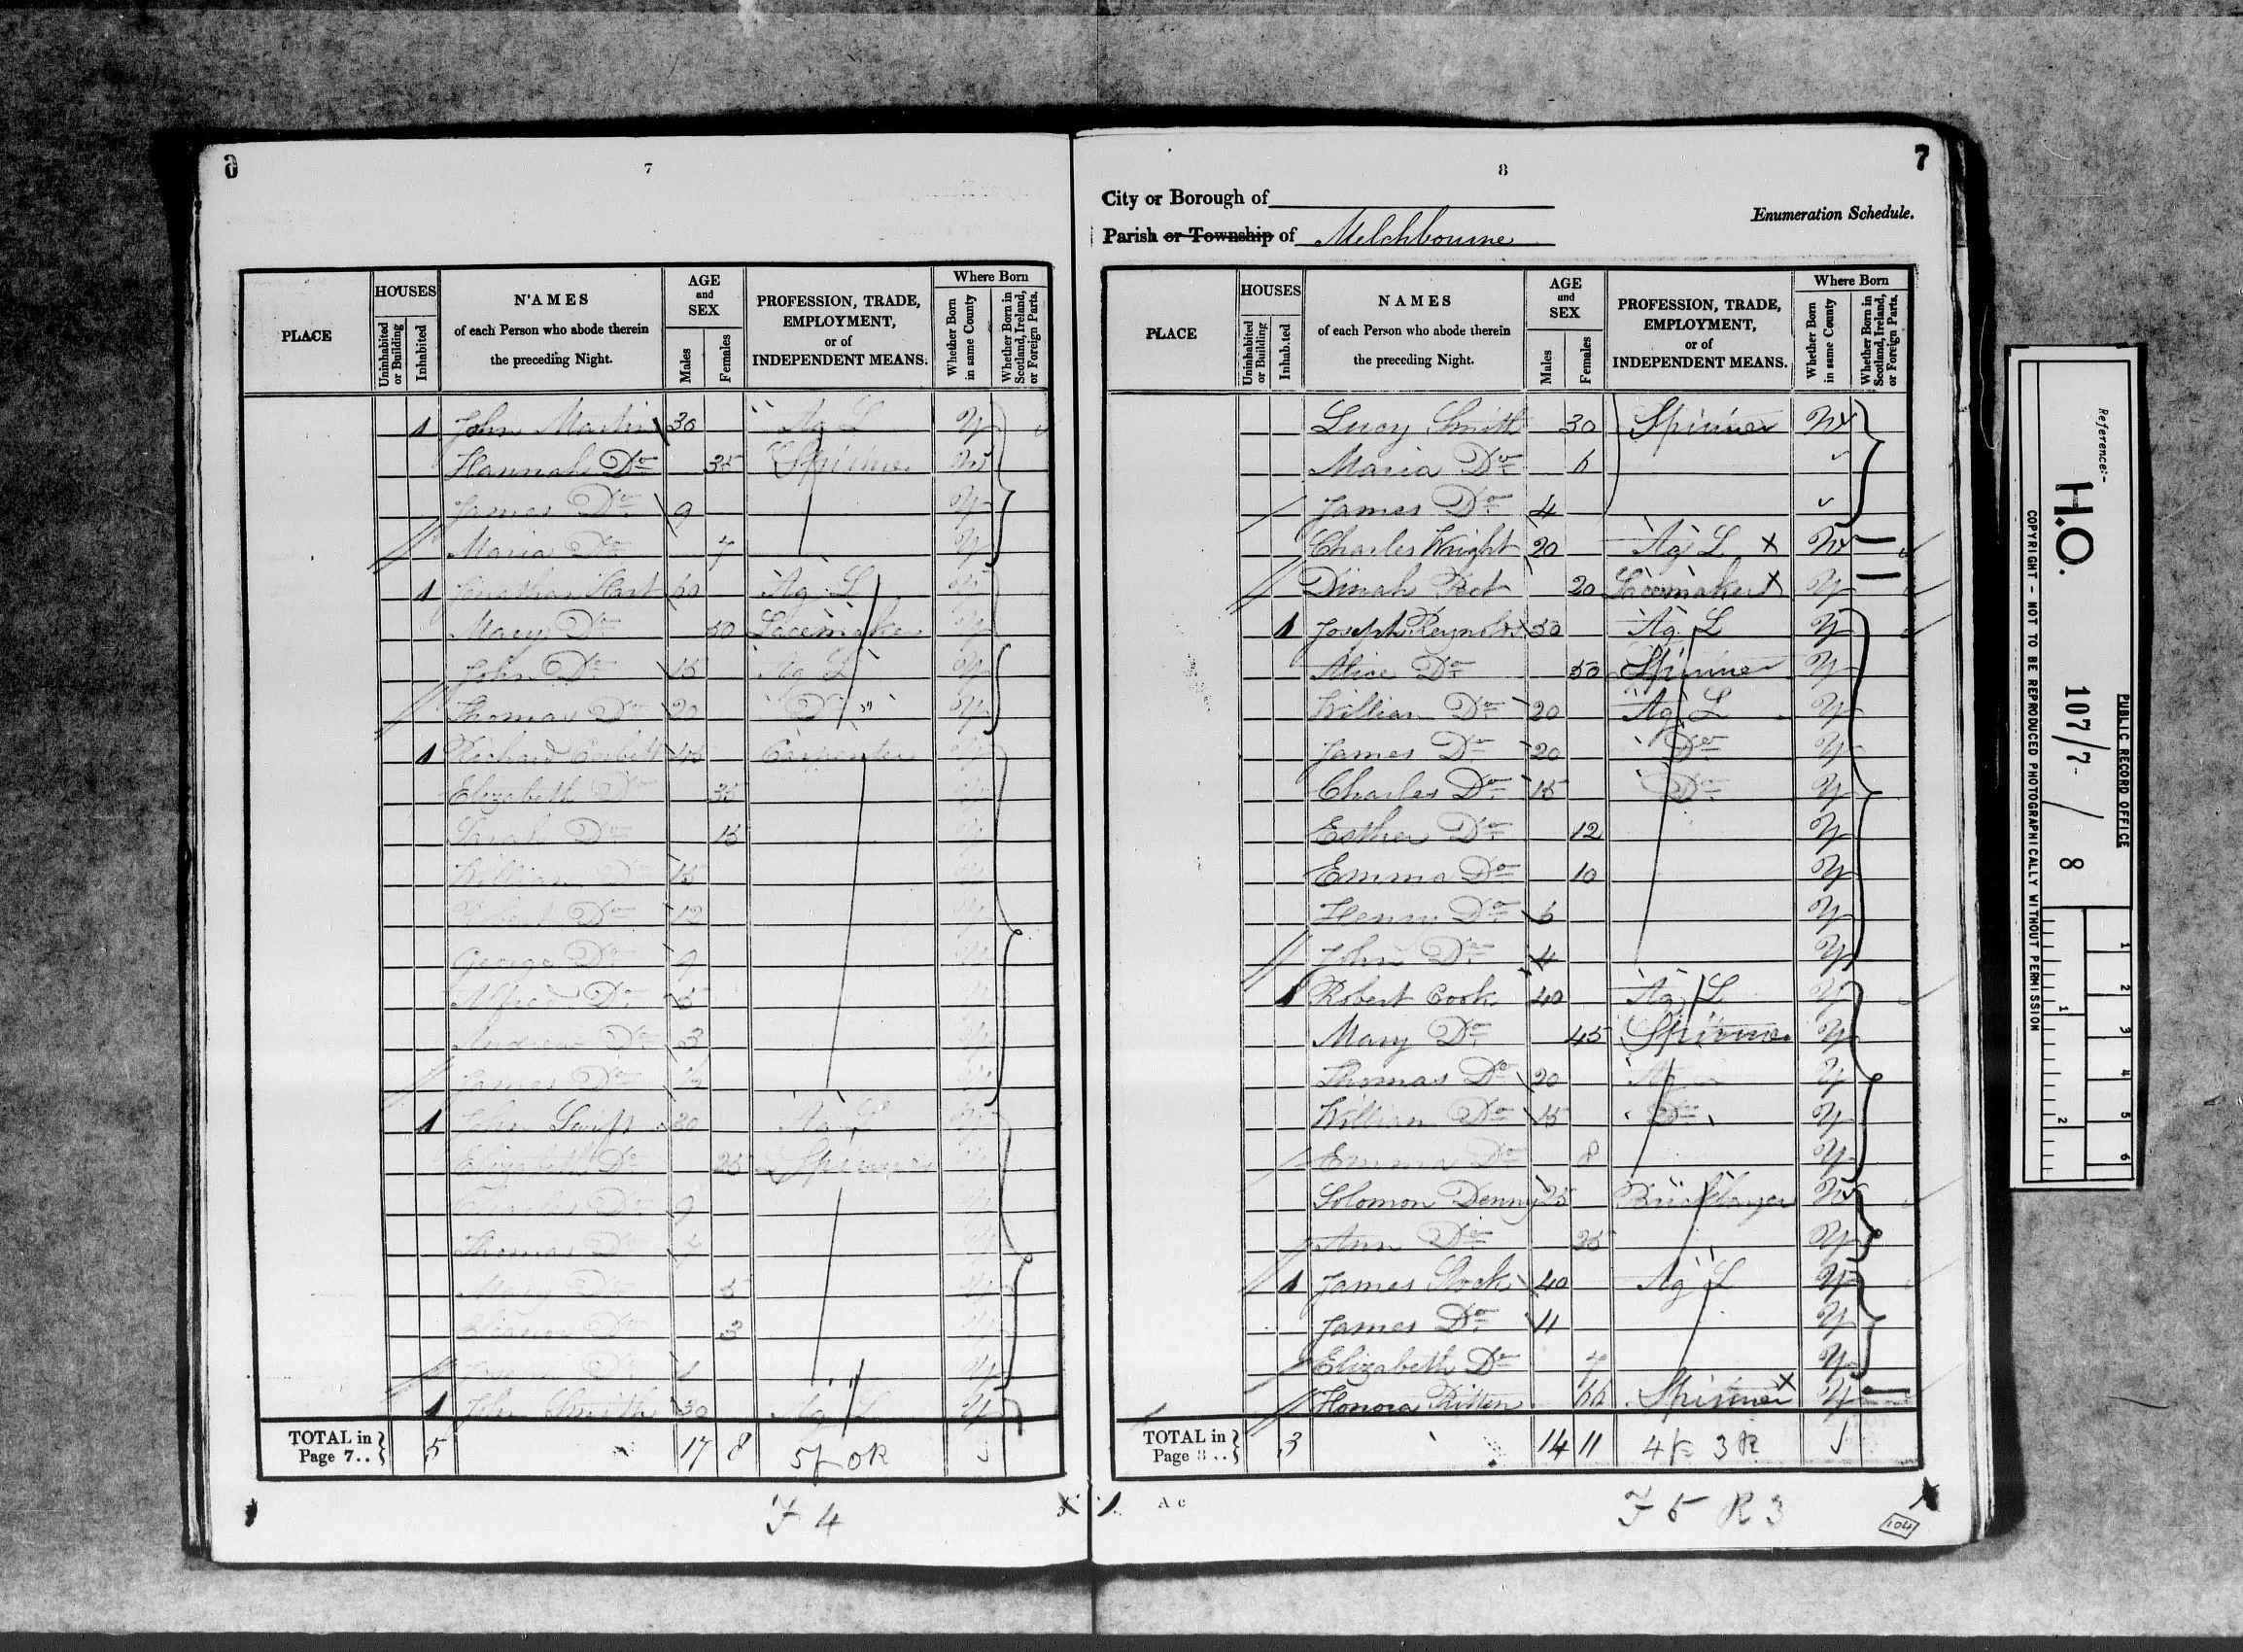 6
7
HOUSES
NAMES
AGE
and
SEX
PROFESSION, TRADE,
EMPLOYMENT,
or of
INDEPENDENT MEANS.
Where Born
PLACE
Uninhabited or Building
Inhabited
of each Person who abode therein
the preceding Night.
Males
Females
Whether Born in same County
Whether Born in Scotland, Ireland, or Foreign Parts.
1 John Martin 30 Ag L Y
Hannah Do 35 Spinner N
James Do 9 Y
Maria Do 7 Y
1 Jonathan Hart 60 Ag L
Mary Do 50 Lacemaker Y
John Do 15 Ag L Y
Thomas Do 20 Do Y
1 Richard Corbett 45 Carpenter
Elizabeth Do 35
Sarah Do 15
William Do 15
Robert Do 12
George Do 9
Alfred Do 5
Andrew Do 3
James Do
1 John Swift 30 Ag L
Elizabeth Do 25 Spinner
Charles Do 9
Thomas Do
Mary Do 5
Eleanor Do 3
Do 1 Y
1 John Smith 30 Ag L Y
TOTAL in
Page 7.. } 5 17 8 5f OR
F 4
8
7
City or Borough of
Enumeration Schedule.
Parish or Township of Melchbourne
HOUSES
NAMES
AGE
and
SEX
PROFESSION, TRADE,
EMPLOYMENT,
or of
INDEPENDENT MEANS.
Where Born
PLACE
Uninhabited or Building
Inhabited
of each Person who abode therein
the preceding Night.
Males
Females
Whether Born in same County
Whether Born in Scotland, Ireland, or Foreign Parts.
Lucy Smith 30 Spinner N
Maria Do 6
James Do 4
Charles Wright 20 Ag L X N
Dinah 20 Lacemaker X Y
1 Joseph Reynolds 50 Ag L Y
Alice Do 50 Spinner Y
William Do 20 Ag L Y
James Do 20 Do Y
Charles Do 15 Do Y
Esther Do 12 Y
Emma Do 10 Y
Henry Do 6 Y
John Do 4 Y
1 Robert Cook 40 Ag L Y
Mary Do 45 Spinner Y
Thomas Do 20 Ag Y
William Do 15 Do Y
Emma Do 8 Y
Solomon Denny 25 Bricklayer N
Ann Do 25 Y
1 James Stock 40 Ag L Y
James Do 11 Y
Elizabeth Do Y
Honora Spinner X Y
TOTAL in
Page 8.. } 3 14 11 4F 3R
A c
F 5 R 3
104
Reference:-
H.O. 107/7 / 8
PUBLIC RECORD OFFICE
1 2 3 4 5 6
1 2
COPYRIGHT - NOT TO BE REPRODUCED PHOTOGRAPHICALLY WITHOUT PERMISSION